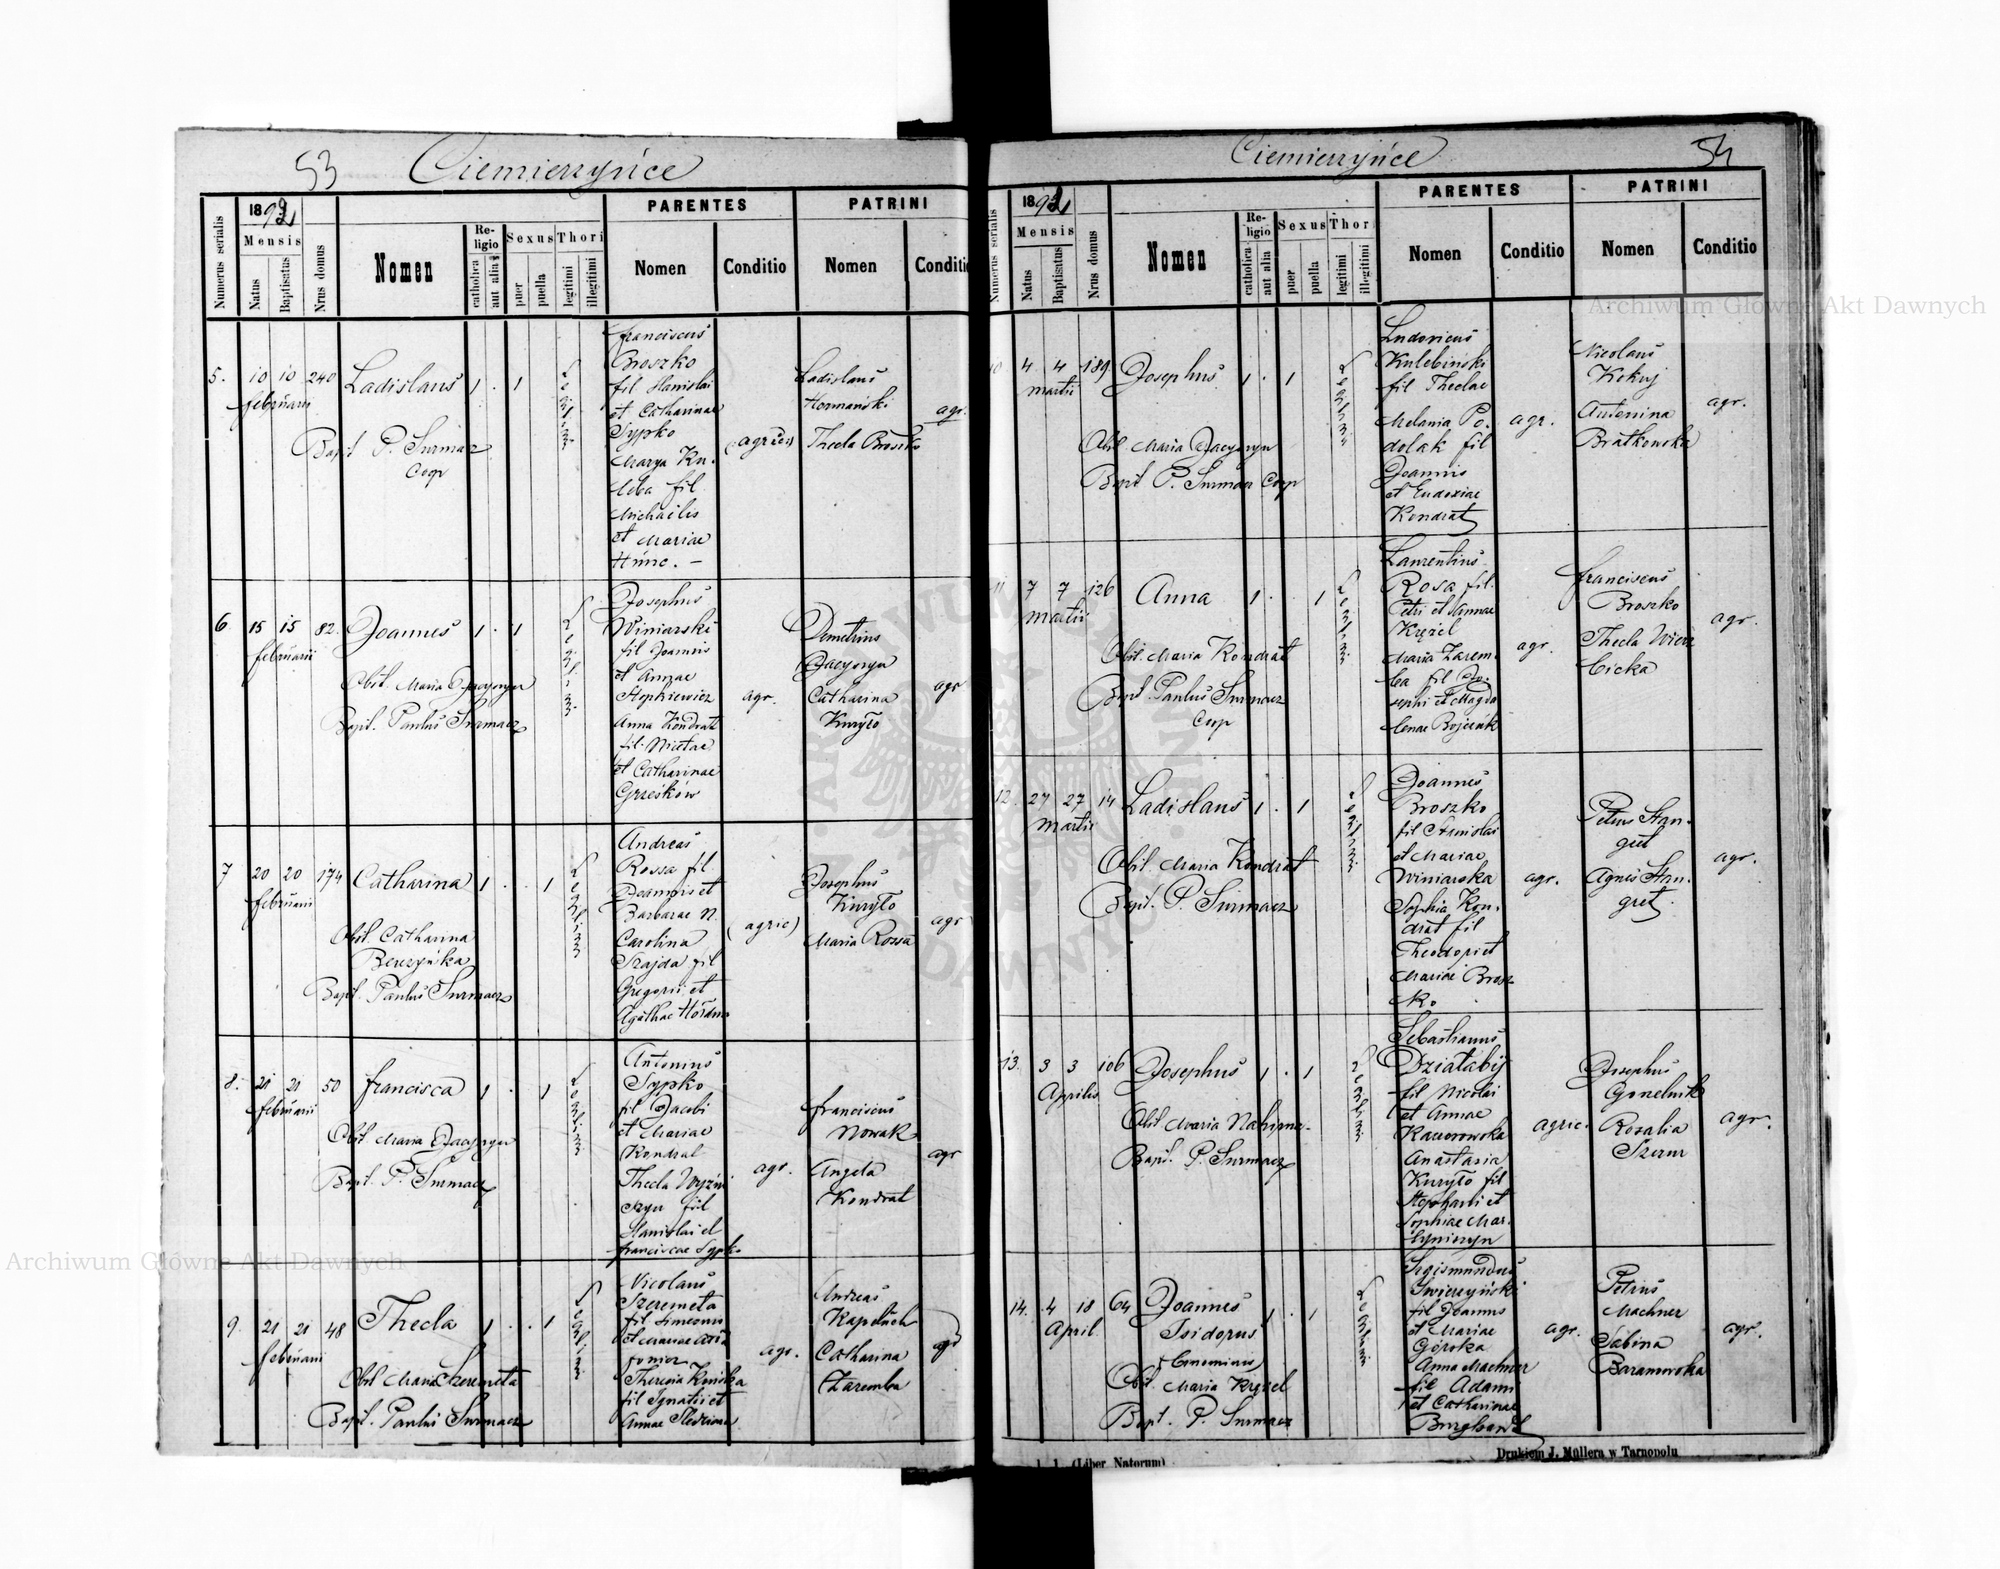 53 Ciemierzyńce
Numerus serialis
1892
Mensis
Natus
Baptisatus
Nrus domus
Nomen
Religio
catholica
aut alia
Sexus
puer
puella
Thori
legitimi
illegitimi
PARENTES
Nomen
Conditio
PATRINI
Nomen
Conditio
5. 10 10 240 Ladislaus 1 . 1
februarii
Bapt P. Surmacz
Coop
Franciscus
Broszko
fil Stanislai
et Catharinae
Sypko
Marya
fil
Michaelis
et Mariae
(agric)
Ladislaus
Thecla Broszko
agr.
6 15 15 82. Joannes 1 . 1
februarii
Obst. Maria Jacyszyn
Bapt. Paulus Surmacz
Josephus
Winiarski
fil Joannis
et Annae
Stopkiewicz
Anna Kondrat
fil. Nicetae
et Catharinae
Grześków
agr.
Demetrius
Jacyszyn
Catharina
Kuryło
agr
7 20 20 174 Catharina 1 . . 1
februarii
Obst. Catharina
Bapt. Paulus Surmacz
Andreas
Rossa fil.
Joannis et
Barbarae N.
Carolina
Szajda fil
Gregorii et
Agathae
(agric)
Josephus
Kuryło
Maria Rossa
agr
8. 21 21 50 Francisca 1 . 1
februarii
Obst. Maria Jacyszyn
Bapt. P. Surmacz
Antonius
Sypko
fil Jacobi
et Mariae
Kondrat
Thecla
fil
Stanislai et
Franciscae Sypko
agr.
Franciscus
Nowak
Angela
Kondrat
agr
9. 21 21 48 Thecla 1 . . 1
februarii
Obst Maria Szeremeta
Bapt. Paulus Surmacz
Nicolaus
Szeremeta
fil Simeonis
Theresia
fil Ignatii et
Annae
agr.
Andreas
Catharina
Zaremba
agr
Ciemierzyńce 54
Numerus serialis
1892
Mensis
Natus
Baptisatus
Nrus domus
Nomen
Religio
catholica
aut alia
Sexus
puer
puella
Thori
legitimi
illegitimi
PARENTES
Nomen
Conditio
PATRINI
Nomen
Conditio
10 4 4 189 Josephus 1 . 1
Martii
Obst Maria Jacyszyn
Bapt P. Surmacz Coop
Ludovicus
Kulebiński
fil Theclae
Melania Po-
dolak fil
Joannis
et Eudoxiae
Kondrat
agr.
Nicolaus
Antonina
Bratkowska
agr.
11 7 7 126 Anna 1 . 1
Martii
Obst. Maria Kondrat
Bapt Paulus Surmacz
Coop
Laurentius
Rosa fil.
Petri et Annae
Krężel
Maria Zarem-
ba fil Jo-
sephi et Magda
lenae
agr.
Franciscus
Broszko
Thecla Wierz
bicka
agr.
12. 27 27 14 Ladislaus 1 . 1
Martii
Obst. Maria Kondrat
Bapt. P. Surmacz
Joannes
Broszko
fil Stanislai
et Mariae
Winiarska
Sophia Kon-
drat fil
Theodori et
Mariae Brosz
ko
agr.
Petrus Stan-
gret
Agnes Stan-
gret
agr.
13. 3 3 106 Josephus 1 . 1
Aprilis
Obst Maria
Bapt. P. Surmacz
Sebastianus
fil Nicolai
et Annae
Kaczorowska
Anastasia
Kuryło fil
Stephani et
Sophiae Mar-
agric.
Josephus
Gonelnik
Rozalia
Szczur
agr.
14. 4 18 64 Joannes 1 . 1
April
Isidorus
(binominis)
Obst. Maria Krężel
Bapt. P. Surmacz
Sigismundus
fil Joannis
et Mariae
Górska
Anna Machner
fil Adami
et Catharinae
Burghardt
agr.
Petrus
Machner
Sabina
Baranowska
agr.
l. l. (Liber Natorum)
Drukiem J. Müllera w Tarnopolu
Archiwum Główne Akt Dawnych
Archiwum Główne Akt Dawnych